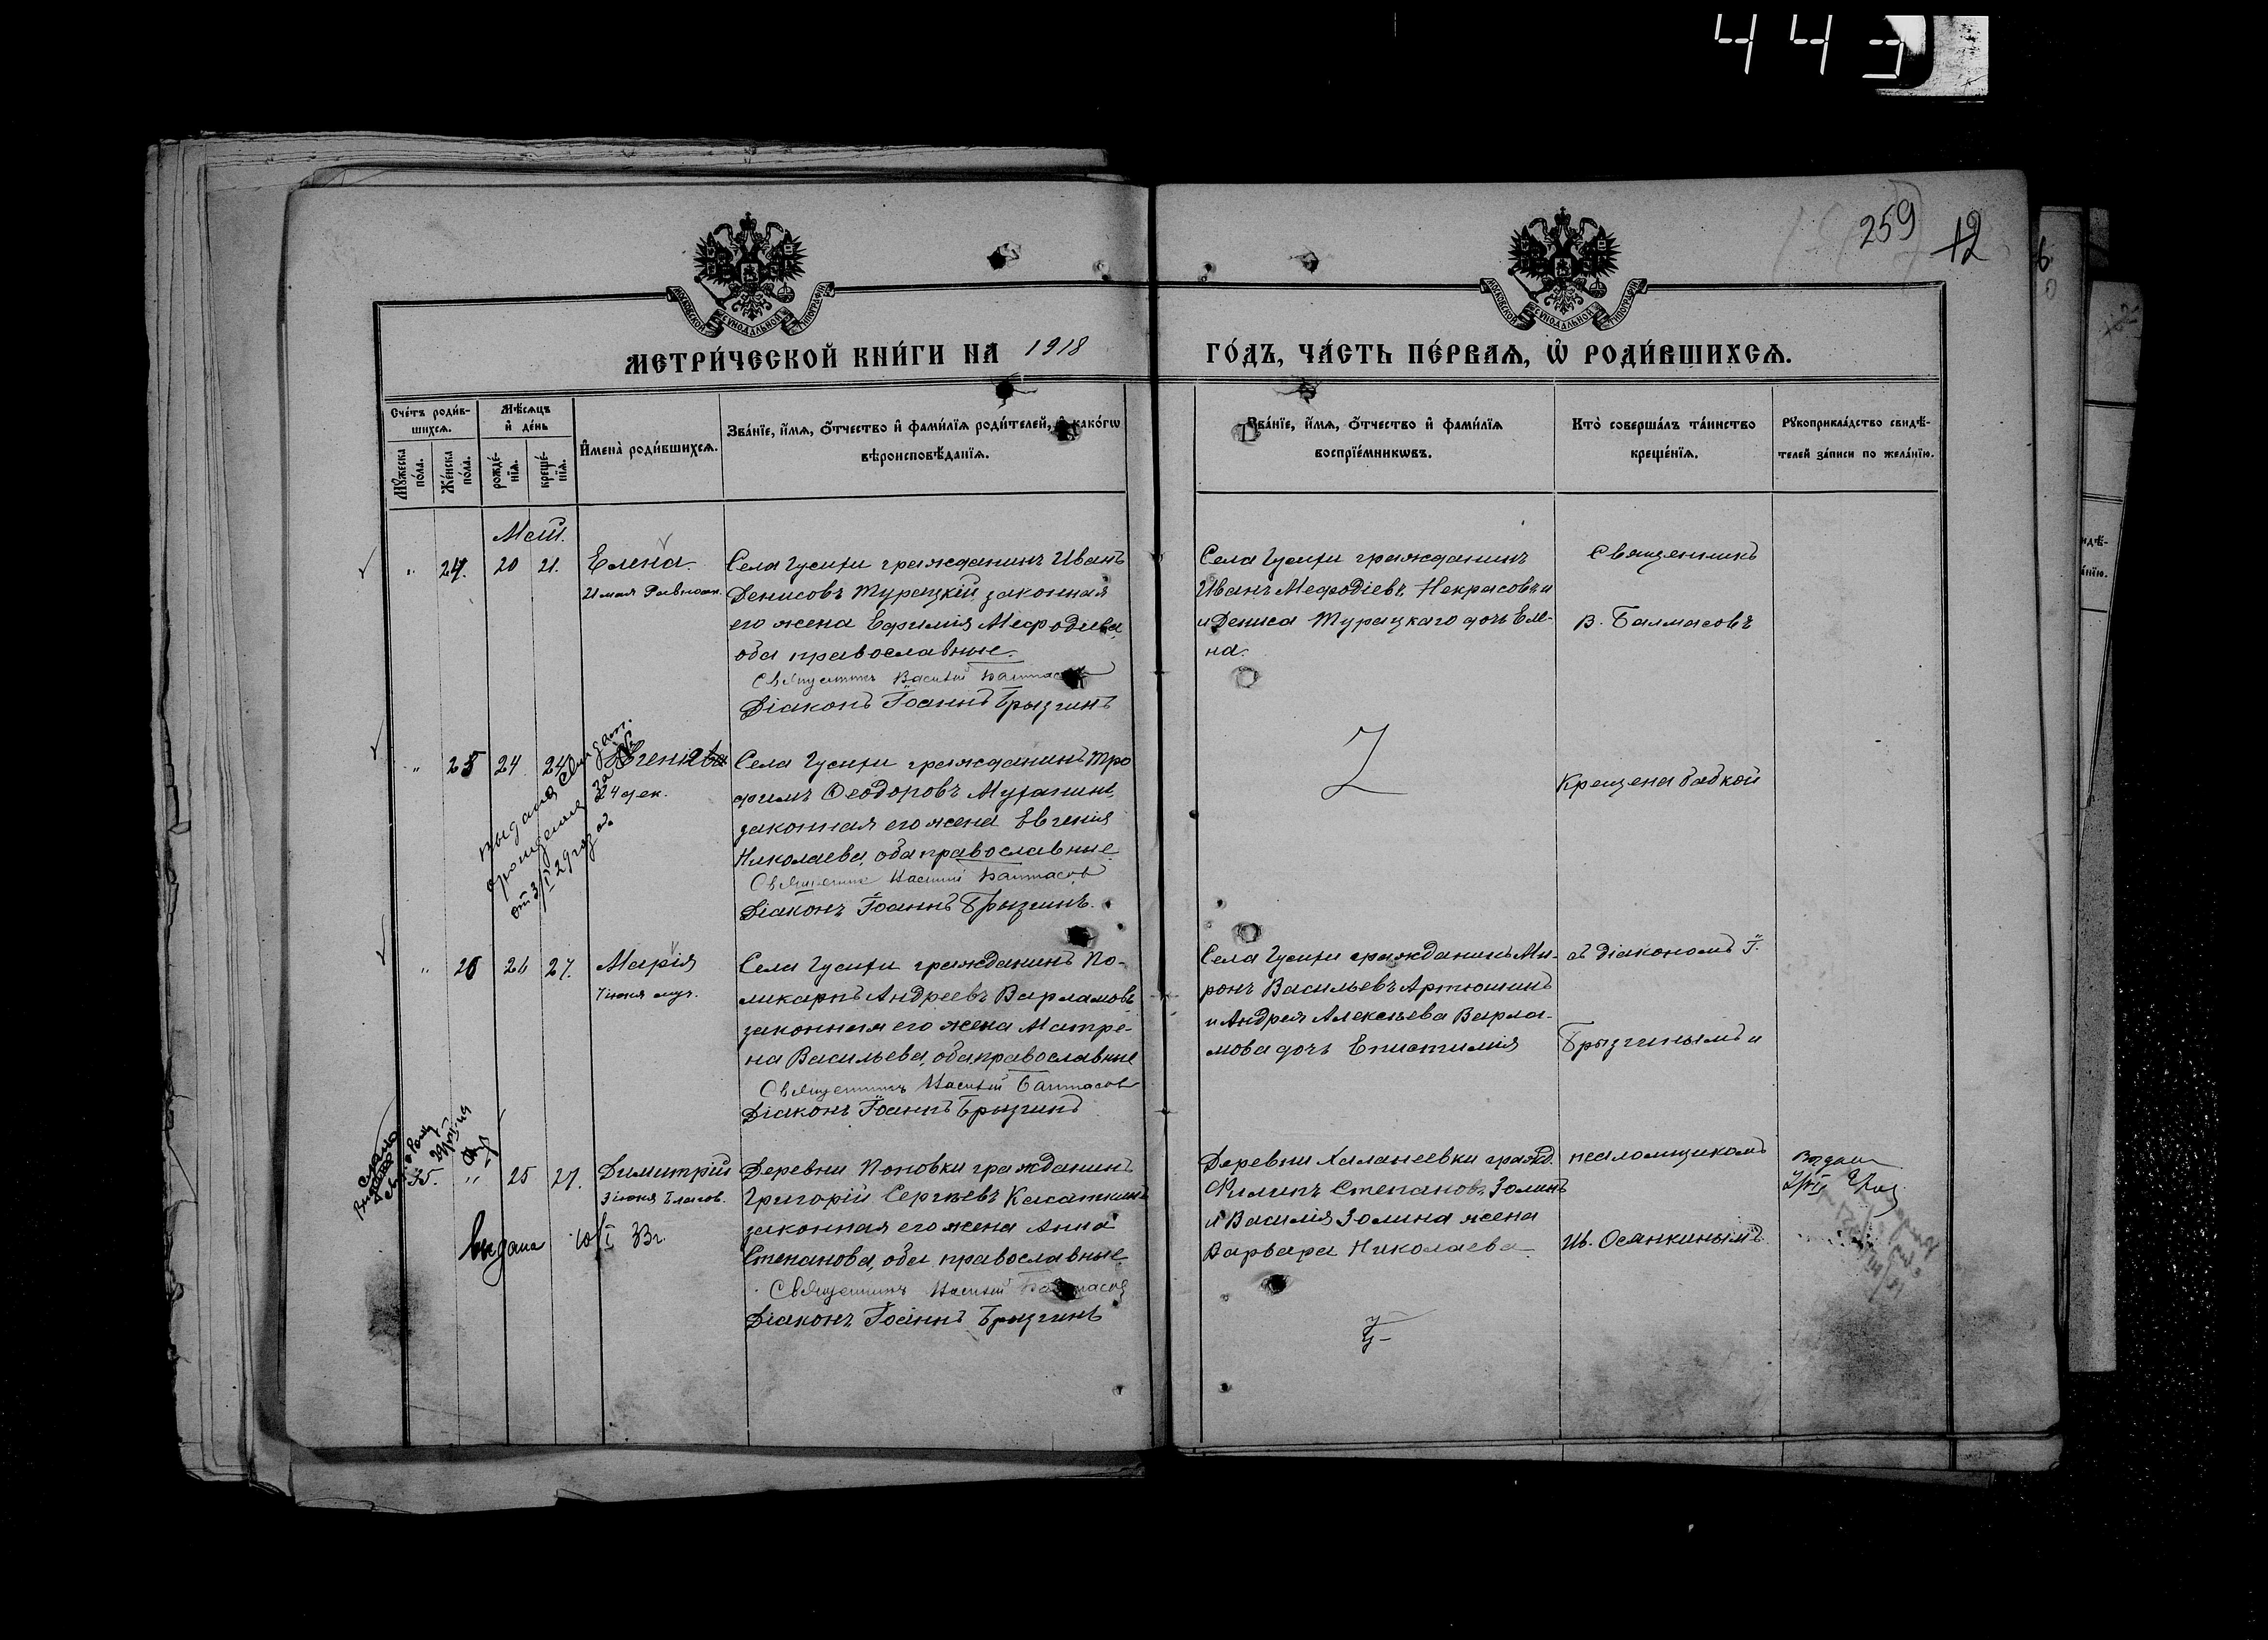 443
259
12
МОСКОВСКОЙ СѴНОДАЛЬНОЙ ТИПОГРАФІИ
МОСКОВСКОЙ СѴНОДАЛЬНОЙ ТИПОГРАФІИ
МЕТРИ́ЧЕСКОЙ КНИ́ГИ НА 1918
ГО́ДЪ, ЧА́СТЬ ПЕ́РВАѦ, Ѡ҆ РОДИ́ВШИХСѦ.
Сче́тъ роди́в-
шихсѧ.
Мѣ́сѧцъ
и҆ де́нь
Мꙋ́жеска
по́ла.
Же́нска
по́ла.
рожде́-
нїѧ.
креще́-
нїѧ.
И҆мена̀ роди́вшихсѧ.
Зва́нїе, и҆́мѧ, ѻ҆́тчество и҆ фами́лїѧ роди́телей, и҆ како́гѡ
вѣроисповѣ́данїѧ.
Зва́нїе, и҆́мѧ, ѻ҆́тчество и҆ фами́лїѧ
воспрїе́мникѡвъ.
Кто̀ соверша́лъ та́инство
креще́нїѧ.
Рꙋкоприкла́дство свидѣ́-
телей за́писи по жела́нїю.
Май.
" 24. 20 21. Елена.
21 мая Равноап.
Села Гусихи гражданинъ Иванъ
Денисовъ Турецкій, законная
его жена Евфимія Мефодиева,
оба православные.
Священникъ Василій Балмасовъ
Діаконъ Іоаннъ Брызгинъ
Села Гусихи гражданинъ
Иванъ Мефодіевъ Некрасовъ и
и Дениса Турецкаго дочь Еле-
на.
Священникъ
В. Балмасовъ
" 25 24 24 Евгенія
24 дек.
выдана
от 3/I 29 года.
Села Гусихи гражданинъ Тро
фимъ Ѳеодоровъ Муханинъ,
законная его жена Евгенія
Николаева, оба православные
Священникъ Василій Балмасовъ
Діаконъ Іоаннъ Брызгинъ.
Крещена бабкой
" 26 26 27. Марія
7 іюня муч.
Села Гусихи гражданинъ По-
ликарпъ Андреевъ Варламовъ
законная его жена Матре-
на Васильева, оба православные
Священникъ Василій Балмасовъ
Діаконъ Іоаннъ Брызгинъ
Села Гусихи гражданинъ Ми-
ронъ Васильевъ Артюшинъ
и Андрея Алексѣева Варла-
мова дочь Епистимия
съ діакономъ І.
Брызгинымъ и
35. " 25 27. Димитрій
3 іюня
выдана 10/I 33г.
Деревни Поповки гражданинъ
Григорій Сергѣевъ Касаткинъ
законная его жена Анна
Степанова, оба православные.
Священникъ Василій Балмасовъ
Діаконъ Іоаннъ Брызгинъ
Деревни Халанеевки гражд.
Филипъ Степановъ Золинъ
и Василія Золина жена
Варвара Николаева.
псаломщикомъ
Ив. Осянкинымъ.
Выдана